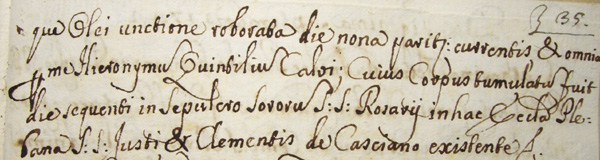 35.
que Olei unctione roborata die nona parit; currentis & omnia
me Hieronymus Quintiliu Calvi; Cuius Corpus tumulatu fuit
die sequenti in Sepulcro Sororu S: S: Rosarij in hac Eccla Ple:
bana S: S: Justi & Clementis de Casciano existente